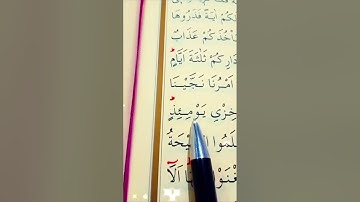 كُمْ اٰيَةً فَذَرُوهَا
أْخُذَكُمْ عَذَابٌ
دَارِكُمْ ثَلٰثَةَ اَيَّامٍ
اَمْرُنَا نَجَّيْنَا
خِزْيِ يَوْمِئِذٍ
لَمُوا يْحَةُ
غْنَوْا اَلَٓا